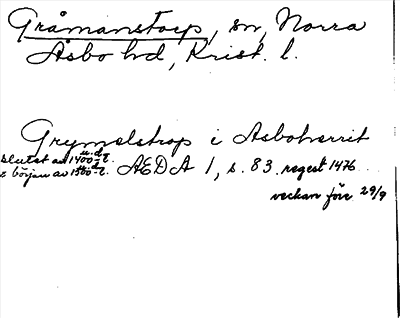 Gråmanstorp, sn, Norra
Asbo hd, Krist. l.
Grymelstrop i Asboherrit
u. d.
slutet av 1400-t.
e början av 1500-t. AEDA 1, s. 83. regest 1476
veckan före 29/9